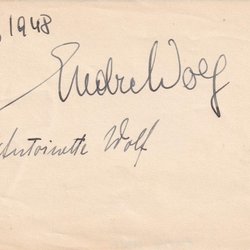 , 1948
Endre Wolf
Antoinette Wolf